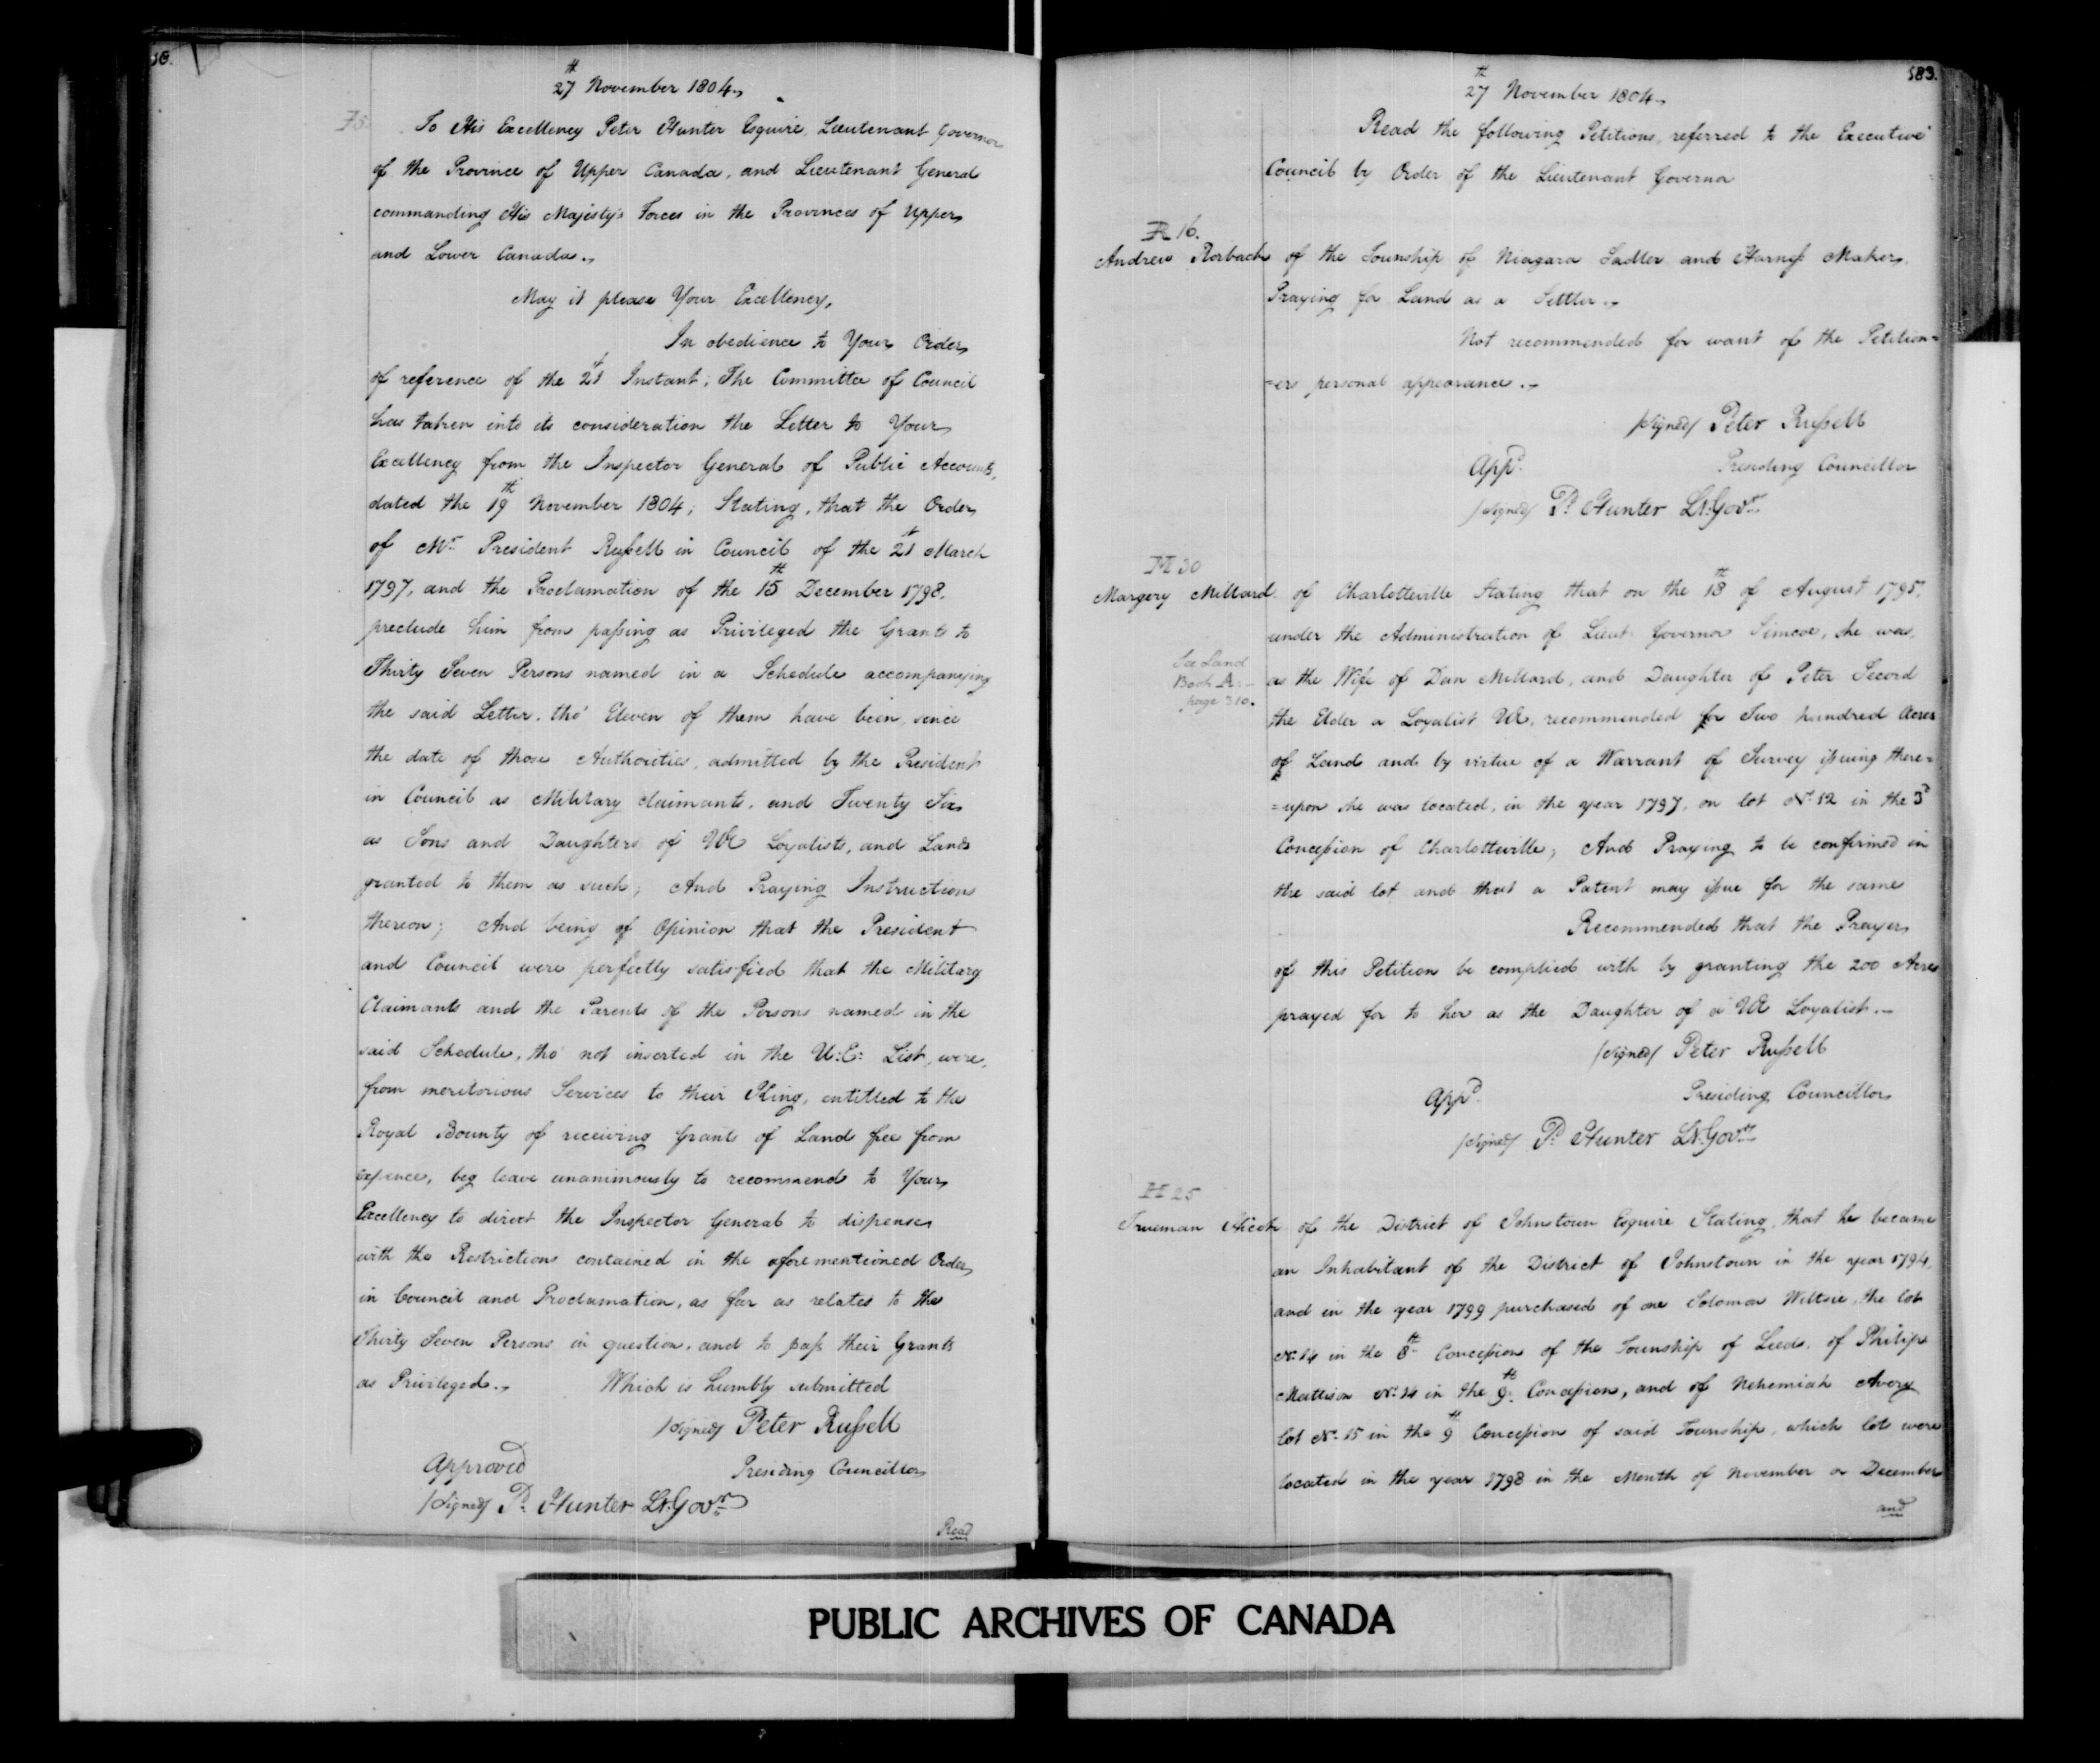 27th November 1804.
To His Excellency Peter Hunter Esquire, Lieutenant Governor
of the Province of Upper Canada, and Lieutenant General
commanding His Majesty's Forces in the Provinces of Upper
and Lower Canada.
May it please Your Excellency,
In obedience to Your Order
of reference of the 21st Instant; The Committee of Council
has taken into its consideration the Letter to Your
Excellency from the Inspector General of Public Accounts,
dated the 19th November 1804; Stating, that the Order
of Mr President Russell in Council of the 21st March
1797, and the Proclamation of the 15th December 1798,
preclude him from passing as Privileged the Grants to
Thirty Seven Persons named in a Schedule accompanying
the said Letter, tho' Eleven of them have been, since
the date of those Authorities, admitted by the President
in Council as Military claimants, and Twenty Six
as Sons and Daughters of UE Loyalists, and Lands
granted to them as such; And Praying Instructions
thereon; And being of Opinion that the President
and Council were perfectly satisfied that the Military
Claimants and the Parents of the Persons named in the
said Schedule, tho' not inserted in the U:E: List, were,
from meritorious Services to their King, entitled to the
Royal Bounty of receiving Grants of Land free from
expence, beg leave unanimously to recommend to Your
Excellency to direct the Inspector General to dispense
with the Restrictions contained in the aforementioned Order
in Council and Proclamation, as far as relates to the
Thirty Seven Persons in question, and to pass their Grants
as Privileged. Which is humbly submitted
/signed/ Peter Russell
Approved Presiding Councillor
/signed/ P. Hunter Lt. Govr
Read
583.
27th November 1804.
Read the following Petitions, referred to the Executive
Council by Order of the Lieutenant Governor
R 16.
Andrew Rorback of the Township of Niagara Sadler and Harness Maker.
Praying for Land as a Settler.
Not recommended for want of the Petition=
=er's personal appearance.
/signed/ Peter Russell
Appd. Presiding Councillor
/signed/ P. Hunter Lt. Govr
M 30
Margery Millard of Charlotteville Stating that on the 18th of August 1795,
under the Administration of Lieut. Governor Simcoe, she was,
See Land
Book A.
page 310.
as the Wife of Dan Millard, and Daughter of Peter Secord
the Elder a Loyalist UE, recommended for Two hundred Acres
of Land and by virtue of a Warrant of Survey issuing there=
=upon she was located, in the year 1797, on lot No. 12 in the 3d
Concession of Charlotteville; And Praying to be confirmed in
the said lot and that a Patent may issue for the same
Recommended that the Prayer
of this Petition be complied with by granting the 200 Acres
prayed for to her as the Daughter of a UE Loyalist.
/signed/ Peter Russell
Appd. Presiding Councillor
/signed/ P. Hunter Lt. Govr
H 25
Trueman Hicok of the District of Johnstown Esquire Stating, that he became
an Inhabitant of the District of Johnstown in the year 1794,
and in the year 1799 purchased of one Solomon Wiltsie, the lot
No. 14 in the 8th Concession of the Township of Leeds, of Philip
Mattison No. 14 in the 9th Concession, and of Nehemiah Avery
lot No. 15 in the 9th Concession of said Township, which lots were
located in the year 1798 in the Month of November or December
and
PUBLIC ARCHIVES OF CANADA